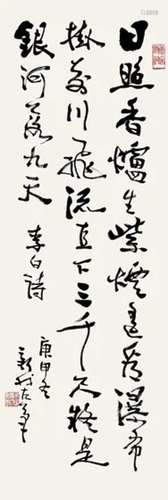 日照香爐生紫煙遙看瀑布
掛前川飛流直下三千尺疑是
銀河落九天 李白詩
庚申冬
新我左筆